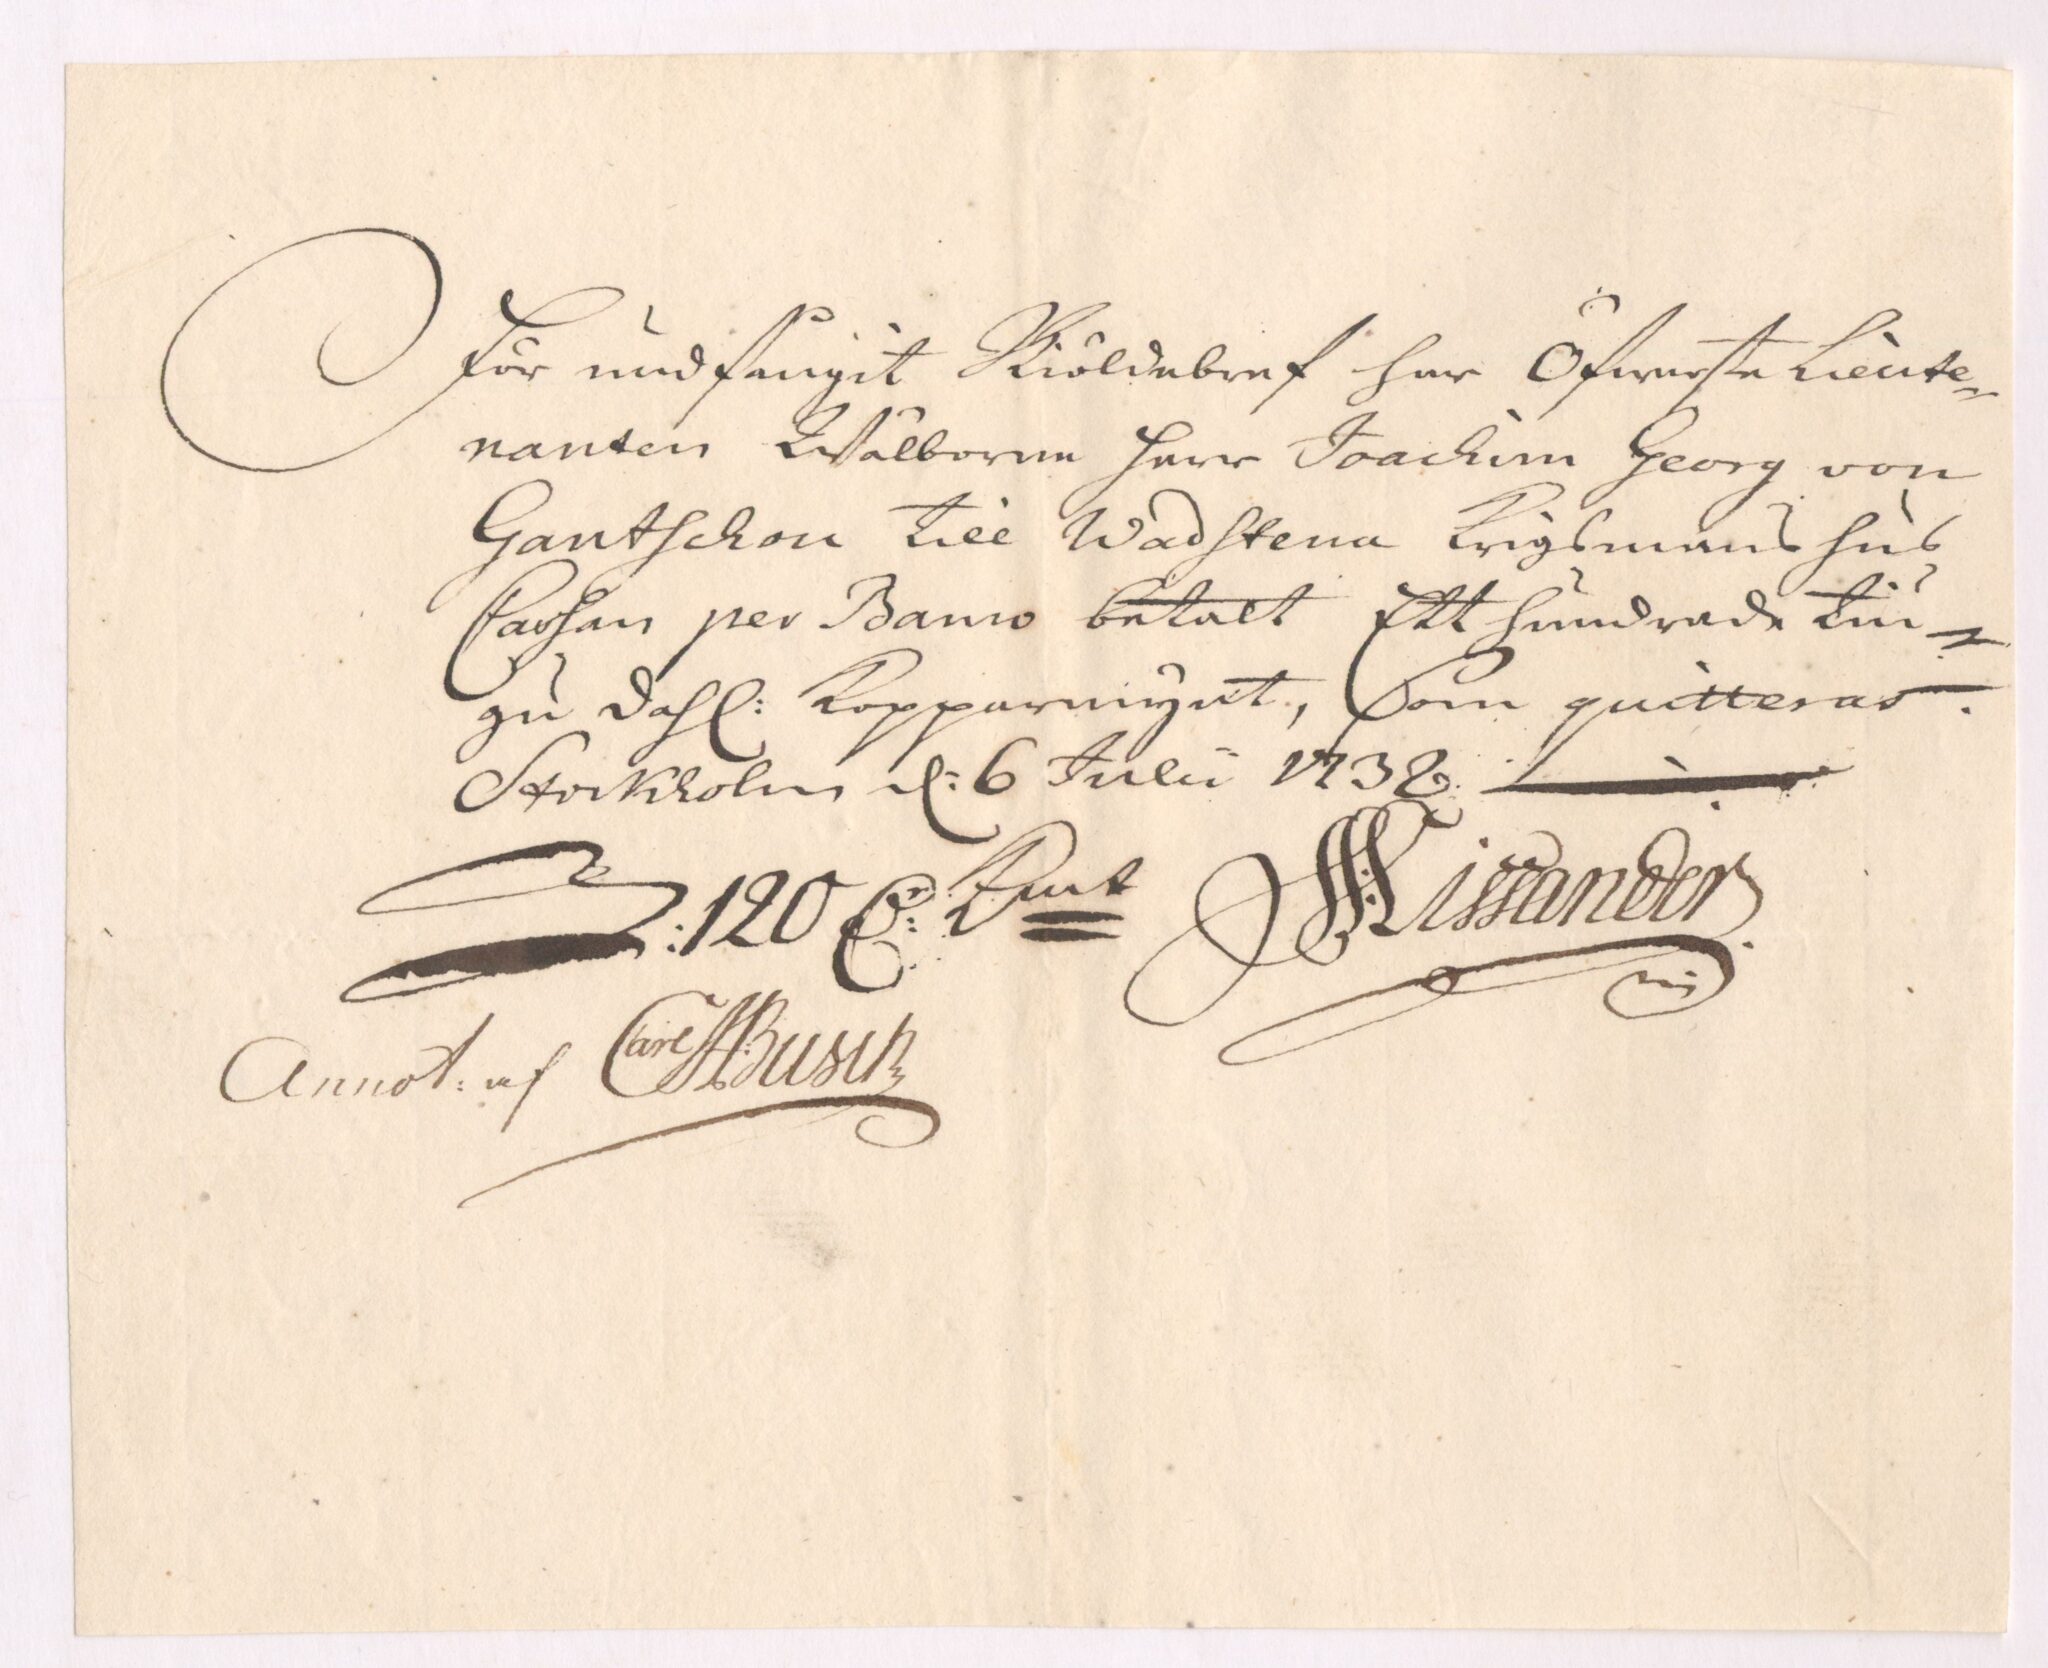 För undfångit Skiöldebref har Öfwerste Lieute-
nanten Wälborne Herr Joachim Georg von
Gantschou till Wadstena Krigsmanshus
Cassan per Banco betalt Ett hundrade tiu-
gu dahl: Kopparmynt, som quitteras.
Stockholm d: 6 Julii 1732.
:120 D:r Kmt Kissander
Annot: af Carl H: Busch